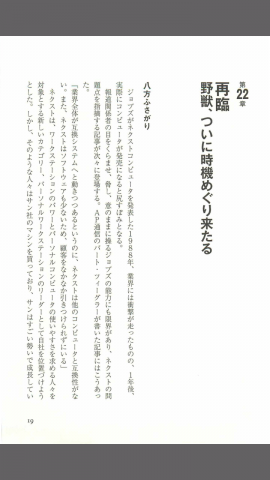 第22章
再臨
野獣、ついに時機めぐり来たる
八方ふさがり
ジョブズがネクストコンピュータを発表した1988年、業界には衝撃が走ったものの、1年後、
実際にコンピュータが発売になると尻すぼみとなる。
報道関係者の目をくらませ、脅し、意のままに操るジョブズの能力にも限界があり、ネクストの問
題点を指摘する記事が次々に登場する。AP通信のバート・フィーグラーが書いた記事にはこうあっ
た。
「業界全体が互換システムへと動きつつあるというのに、ネクストは他のコンピュータと互換性がな
い。また、ネクストはソフトウェアも少ないため、顧客をなかなか引きつけられずにいる」
ネクストは、ワークステーションのパワーとパーソナルコンピュータの使いやすさを求める人々を
対象とする新しいカテゴリー、パーソナルワークステーションのリーダーとして自社を位置づけよう
とした。しかし、そのような人々はサン社のマシンを買っており、サンはすごい勢いで成長してい
19